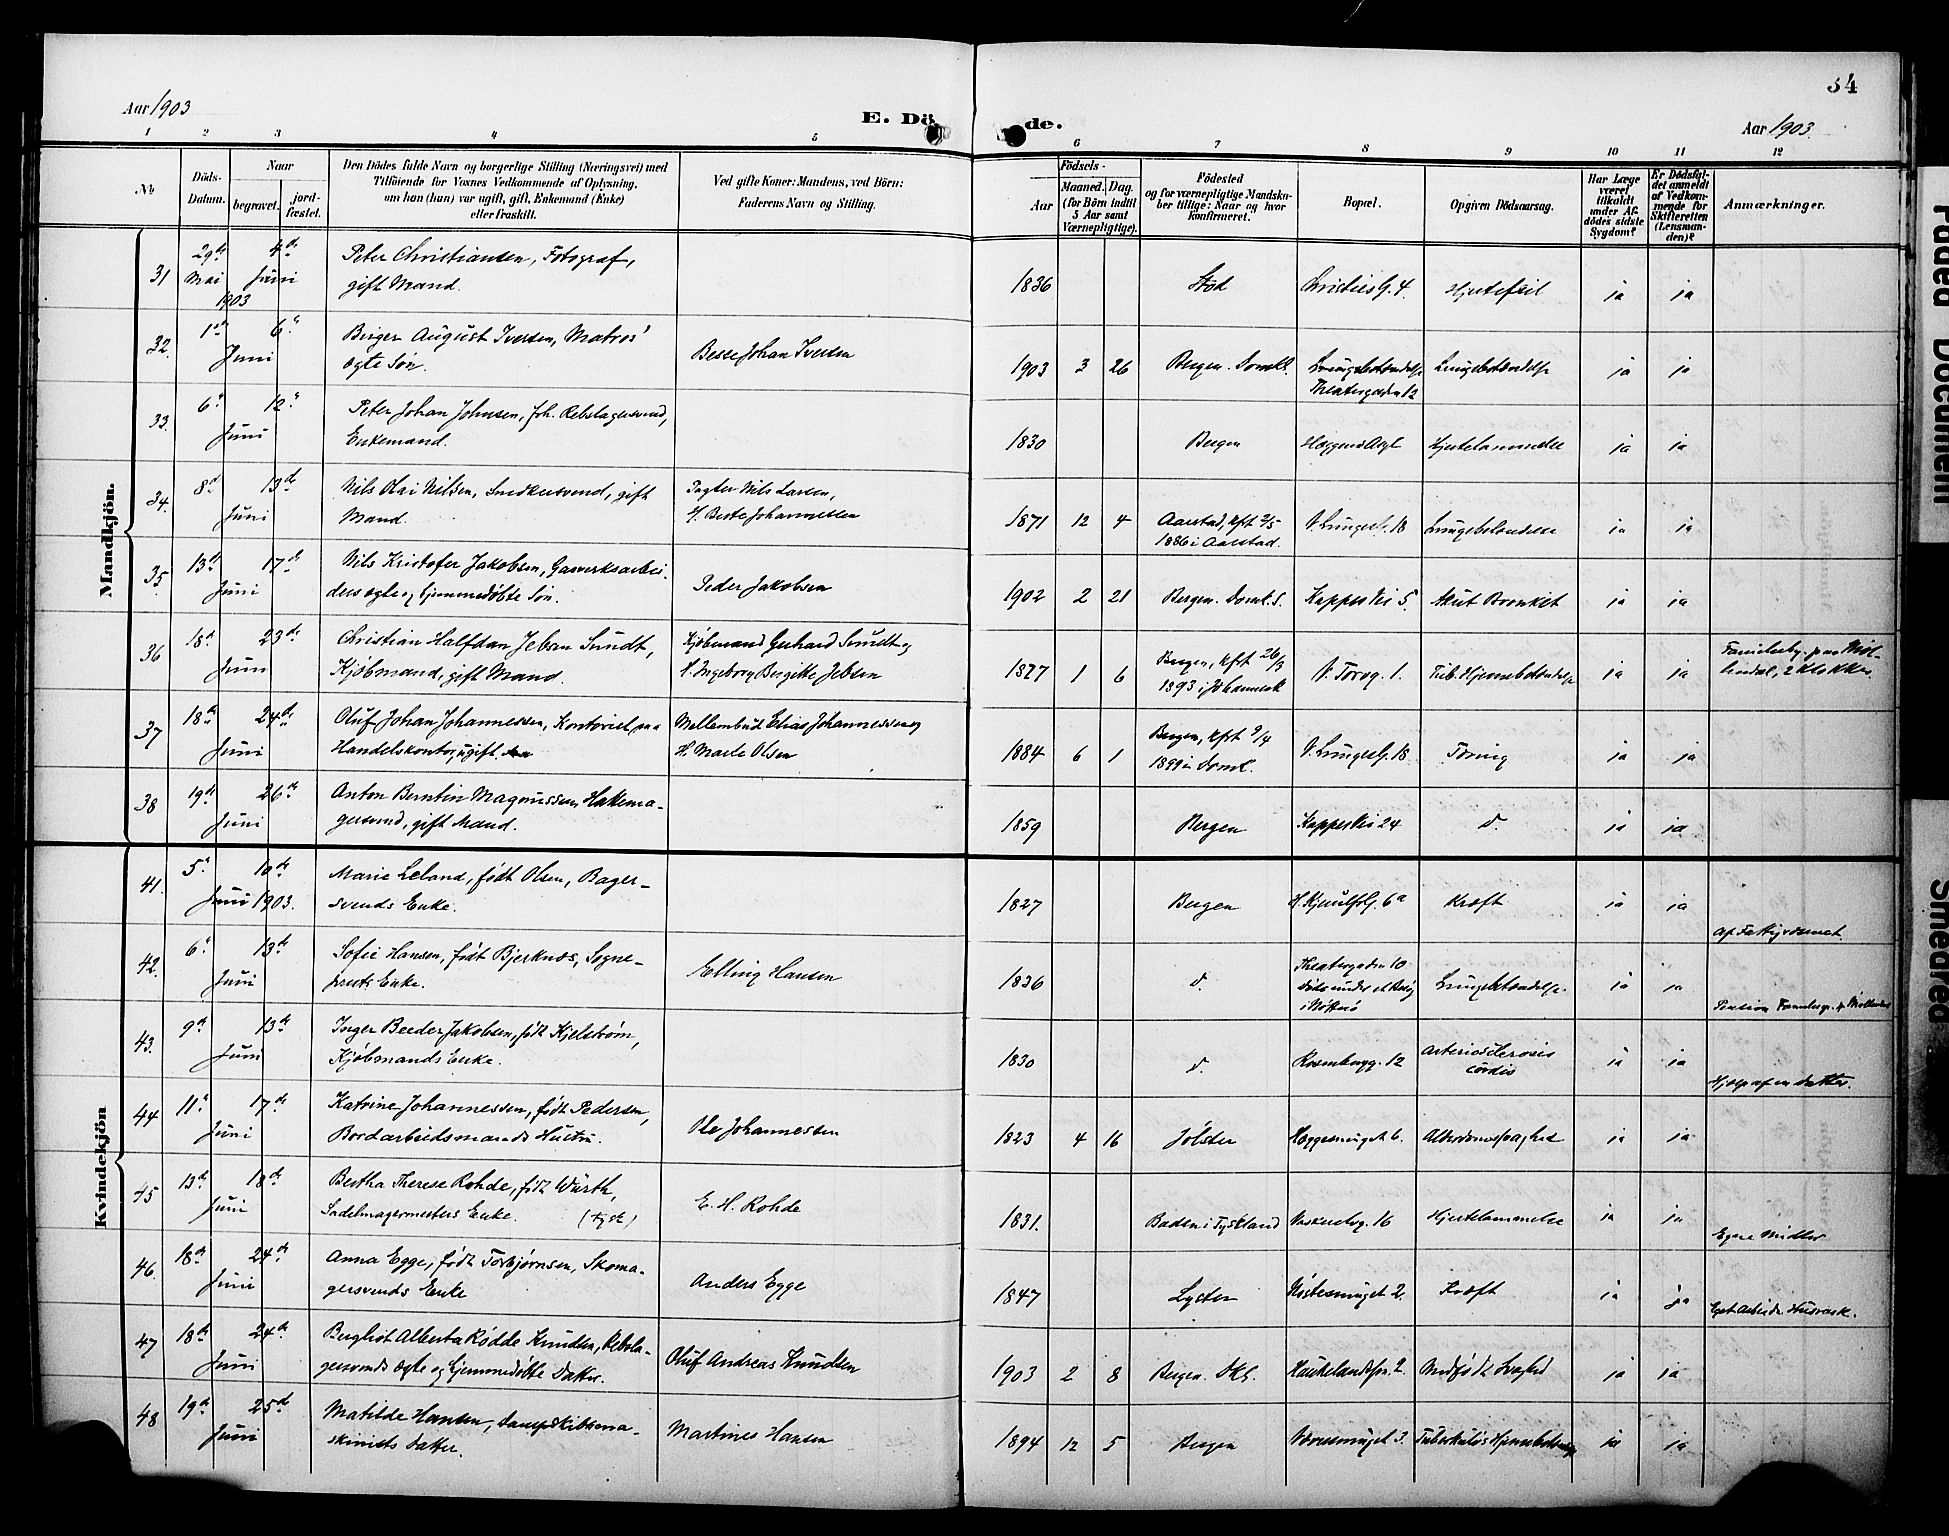 34
Aar 1903
E. Dö de.
Aar 1903
1 2 3 4 5 6 7 8 9 10 11 12
No
Döds-Datum.
Naar
begravet.
jord-fæstet.
Den Dödes fulde Navn og borgerlige Stilling (Næringsvei) med
Tilföiende for Voxnes Vedkommende af Oplysning,
om han (hun) var ugift, gift, Enkemand (Enke)
eller fraskilt.
Ved gifte Koner: Mandens, ved Börn:
Faderens Navn og Stilling.
Födsels-
Aar
Maaned. Dag.
(for Börn indtil
5 Aar samt
Værnepligtige).
Födested
og for værnepligtige Mandska-
ber tillige: Naar og hvor
konfirmeret.
Bopæl.
Opgiven Dödsaarsag.
Har Læge
været
tilkaldt
under Af-
dödes sidste
Sygdom?
Er Dödsfal-
det anmeldt
af Vedkom-
mende for
Skifteretten
(Lensman-
den)?
Anmærkninger.
Mandkjön.
31 29de Mai 1903 4de Juni Peter Christiansen, Fotograf,
gift Mand. 1836 Stod Christies G. 4. Hjertefeil ja ja
32. 1ste Juni 6te Birger August Iversen, Matros'
ægte Søn. Besse Johan Iversen 1903 3 26 Bergen. Domk. Lungebetændelse
Theatergaden 12 Lungebetændelse ja ja
33. 6te Juni 12te Peter Johan Johnsen, fh. Rebslagersvend,
Enkemand. 1830 Bergen Hjertelammelse ja ja
34. 8de Juni 13de Nils Olai Nilsen, Snedkersvend, gift
Mand. Nils Larsen,
H. Beste Johannessen 1871 12 4 Aarstad, kft 2/5
1886 i Aarstad. V. Lungeg. 18 Lungebetændelse ja ja
35 13de Juni 17de Nils Kristofer Jakobsen, Gasverksarbei-
ders ægte og hjemmedøbte Søn. Peder Jakobsen 1902 2 21 Bergen. Domk. S. Kappesvei 5. Akut Bronkit ja ja
36 18de Juni 23de Christian Halfdan Jebsen Sundt,
Kjøbmand, gift Mand. Kjøbmand Gerhard Sundt og
H. Ingeborg Birgitte Jebsen 1877 1 6 Bergen, kft 26/3
1893 i Johannesk V. Torvg. 1. Tub. Hjernebetændelse ja ja Familiebg. paa Møl-
lendal, 2 Klokker.
37 18de Juni 24de Oluf Johan Johannessen, Kontorist paa
Handelskontor, ugift. Mellembud Elias Johannessen og
H. Marte Olsen 1884 6 1 Bergen, kft 9/4
1899 i Domk. V. Lungeg. 18 Tæring ja ja
38 19de Juni 26de Anton Berntin Magnussen, Hakema-
gersvend, gift Mand. 1859 Bergen Kappesvei 24 d. ja ja
Kvindekjön
41. 5te Juni 10de 1903. Marie Leland, født Olsen, Bager-
svends Enke. 1827 Bergen 6a Kræft ja ja Af Fattigvæsenet.
42. 6te Juni 13de Sofie Hansen, født Bjerknæs, Sogne-
prests Enke. Elling Hansen 1836 d. Theatergaden 10
døde under et Besøg
i Lungebetændelse. ja ja Pension Familiegr. p. Møllendal
43. 9de Juni 13de Inger Beeder Jakobsen, født Kjelstrøm,
Kjøbmands Enke. 1830 d. Rosenbergg. 12 Arteriosclerosis
cordis ja ja Hjelp af en Datter.
44 11te Juni 17de Katrine Johannessen, født Pedersen,
Bordarbeidsmands Hustru. Ole Johannessen 1823 4 16 Jølster Heggesmuget 6. Alderdomssvaghed ja ja
45 13de Juni 18de Bertha Therese Rohde, født Würth,
Sadelmagermesters Enke. (tysk) E. H. Rohde 1831. Baden i Tyskland 16 Hjertelammelse ja ja Egne Midler
46. 18de Juni 24de Anna Egge, født Torbjørnsen, Skoma-
gersvends Enke Anders Egge 1847 Lyster Nøstesmuget 2. Kræft ja ja Eget Arbeide Husvask.
47 18de Juni 24de Bergliot Alberta Rødde Knudsen, Rebsla-
gersvends ægte og hjemmedøbte Datter. Oluf Andreas Knudsen 1903 2 8 Bergen. Dk S. Haukelandsvn. 2. Medfødt Svaghed ja ja
48 19de Juni 25de Matilde Hansen, Dampskibsma-
skinists Datter. Martines Hansen 1894 12 5 Bergen 3. Tuberkuløs Hjernebetændelse ja ja
Faded Document
Smeared